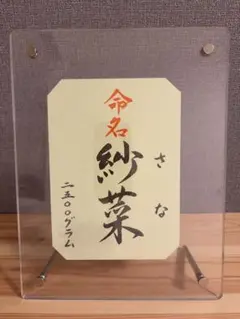 命名
紗菜
さな
二五〇〇グラム